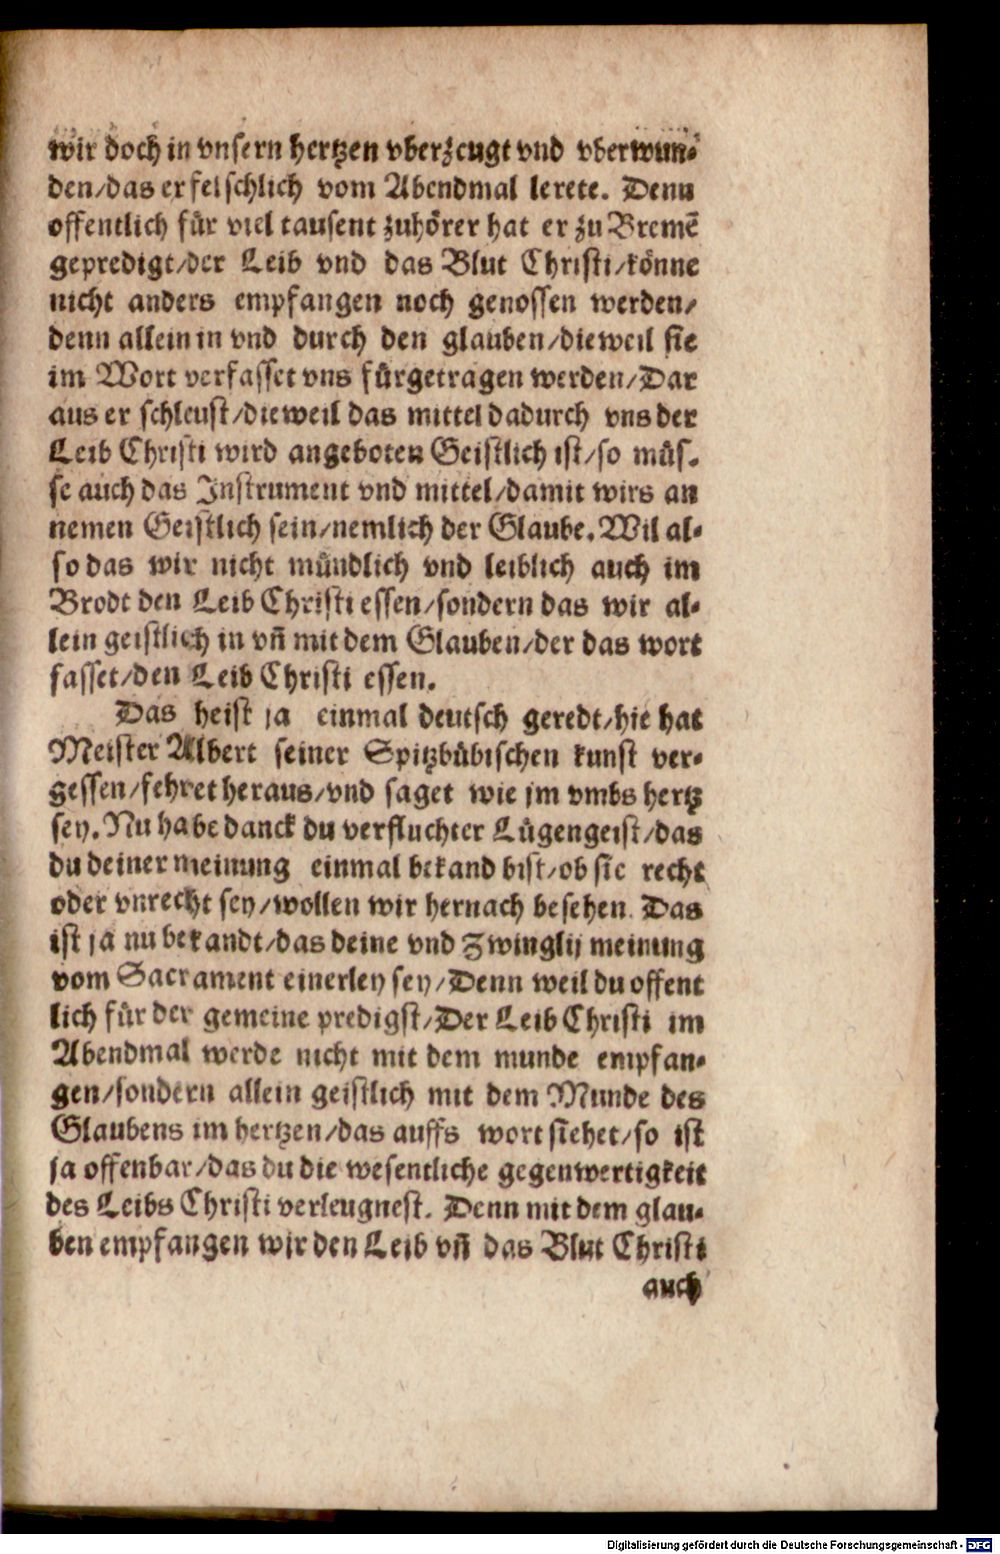 wir doch in vnsern hertzen vberzeugt vnd vberwun-
den/das er felschlich vom Abendmal lerete. Denn
offentlich für viel tausent zuhörer hat er zu Bremē
gepredigt/der Leib vnd das Blut Christi/könne
nicht anders empfangen noch genossen werden/
denn allein in vnd durch den glauben/dieweil sie
im Wort verfasset vns fürgetragen werden/Dar
aus er schleust/dieweil das mittel dadurch vns der
Leib Christi wird angeboten Geistlich ist/so müs-
se auch das Instrument vnd mittel/damit wirs an
nemen Geistlich sein/nemlich der Glaube. Wil al-
so das wir nicht mündlich vnd leiblich auch im
Brodt den Leib Christi essen/sondern das wir al-
lein geistlich in vñ mit dem Glauben/der das wort
fasset/den Leib Christi essen.
Das heist ja einmal deutsch geredt/hie hat
Meister Albert seiner Spitzbübischen kunst ver-
gessen/fehret heraus/vnd saget wie jm vmbs hertz
sey. Nu habe danck du verfluchter Lügengeist/das
du deiner meinung einmal bekand bist/ob sie recht
oder vnrecht sey/wollen wir hernach besehen. Das
ist ja nu bekandt/das deine vnd Zwinglij meinung
vom Sacrament einerley sey/Denn weil du offent
lich für der gemeine predigst/Der Leib Christi im
Abendmal werde nicht mit dem munde empfan-
gen/sondern allein geistlich mit dem Munde des
Glaubens im hertzen/das auffs wort siehet/so ist
ja offenbar/das du die wesentliche gegenwertigkeit
des Leibs Christi verleugnest. Denn mit dem glau-
ben empfangen wir den Leib vñ das Blut Christi
auch
Digitalisierung gefördert durch die Deutsche Forschungsgemeinschaft - DFG